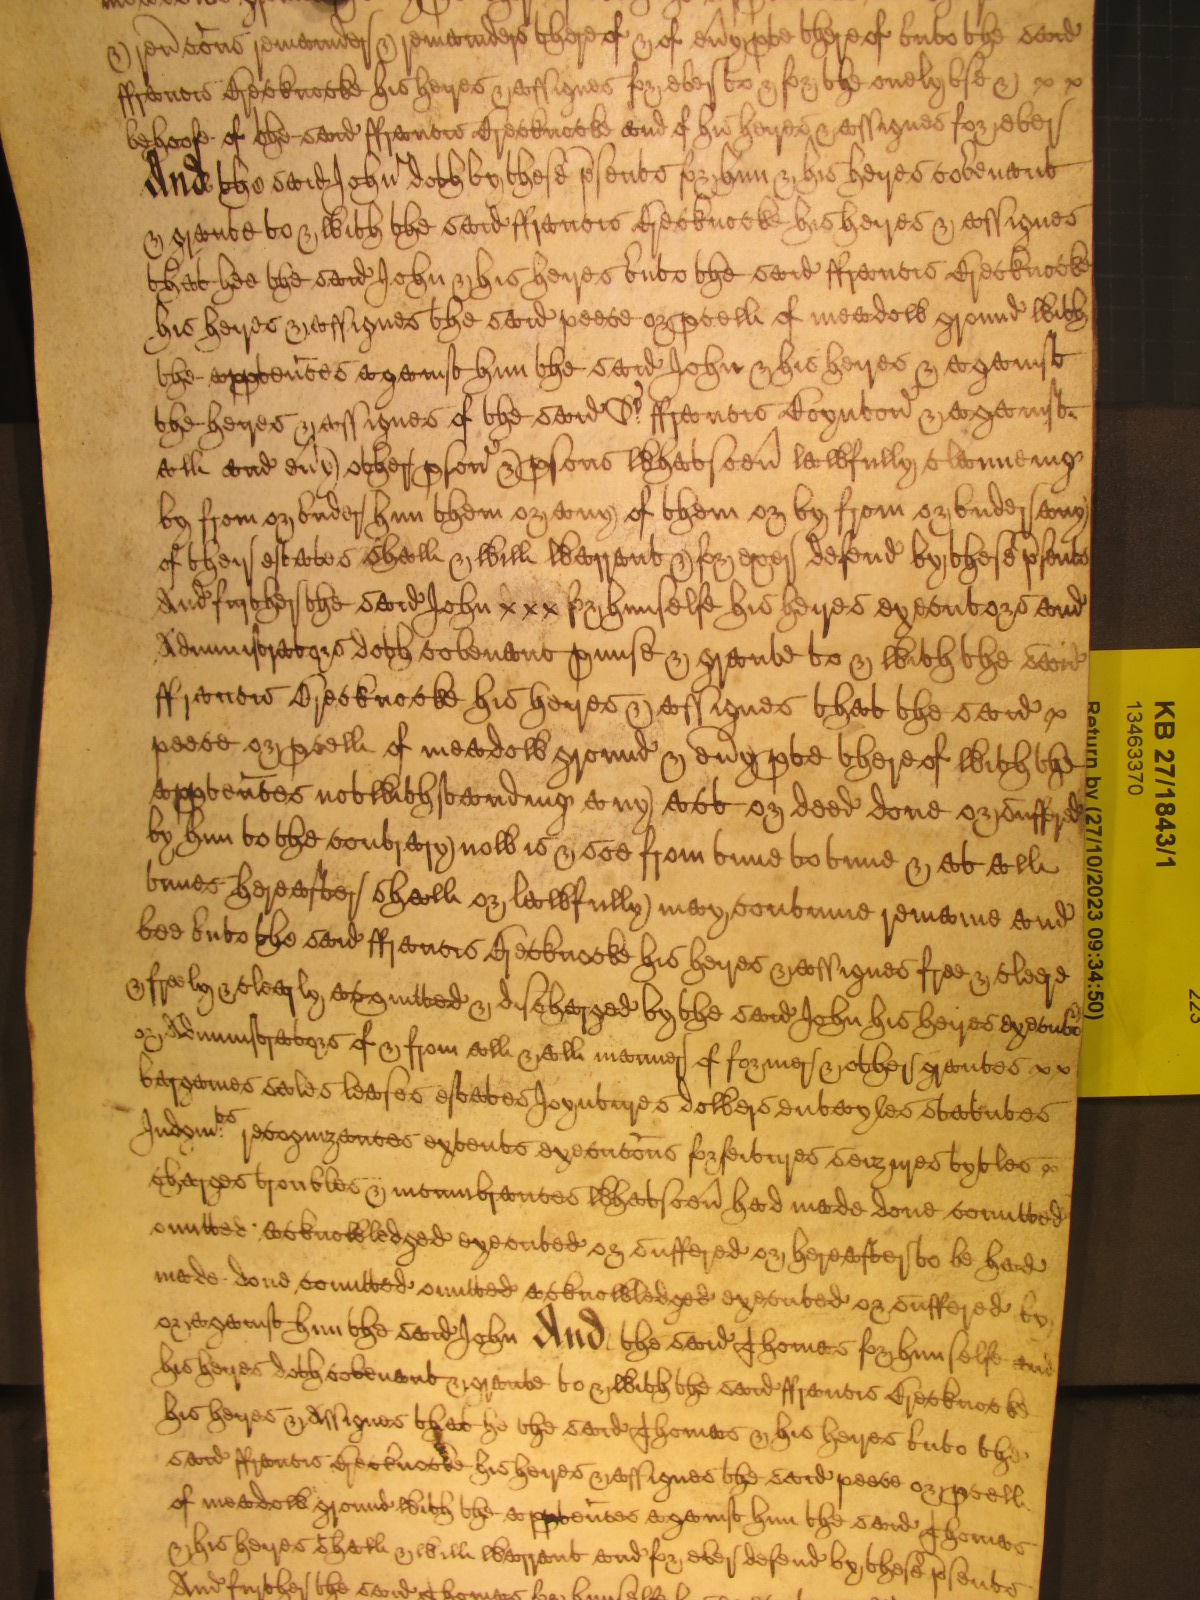 & revercons remainder & remainders thereof & of evy pte thereof unto the said
ffrancis Greeknocke his heyres & assignes for ever to & for the onely use & x x
behoofe of the said ffrancis Greeknocke and of his heyres & assignes for ever
And the said John doth by these psents for him & his heyres covenant
& graunte to & with the said ffrancis Greeknocke his heyres & assignes
that hee the said John & his heyres unto the said ffrancis Greeknocke
his heyres & assignes the said peece or pcell of meadow ground with
the apptences against him the said John & his heyres & against
the heyres & assignes of the said Sr ffrancis Boynton & against
all and evy other pson & psons whatsoev lawfully claimeing
by from or under him them or any of them or by from or under any
of their estates shall & will warrant & for ever defend by these psents
And further the said John x x x for himselfe his heyres executors and
Administrators doth covenant pmise & graunte to & with the said
ffrancis Greeknocke his heyres & assignes that the said x
peece or pcell of meadow ground & evy pte thereof with the
apptences notwithstanding any act or deed done or suffered
by him to the contrary now is & soe from time to time & at all
times hereafter shall or lawfully may continue remaine and
bee unto the said ffrancis Greeknocke his heyres & assignes free & cleere
& freely & clearly acquitted & discharged by the said John his heyres executors
or Administrators of & from all & all manner of former & other grantes x x
bargaines sales leases estates Joyntures dowers entayles statutes
Judgmts recognizances extents executons forfeitures seizures tytles x
charges troubles & incumbrances whatsoev had made done comitted
omitted acknowledged executed or suffered or hereafter to be had
made done comitted omitted acknowledged executed or suffered by
or against him the said John And the said Thomas for himselfe and
his heyres doth covenant & graunte to & with the said ffrancis Greeknocke
his heyres & Assignes that he the said Thomas & his heyres unto the
said ffrancis Greeknocke his heyres & assignes the said peece or pcell
of meadow ground with the apptences against him the said Thomas
& his heyres shall & will warrant and for ever defend by these psents
And further the said Thomas for himselfe
KB 27/1843/1
13463370
Return by (27/10/2023 09:34:50)
223